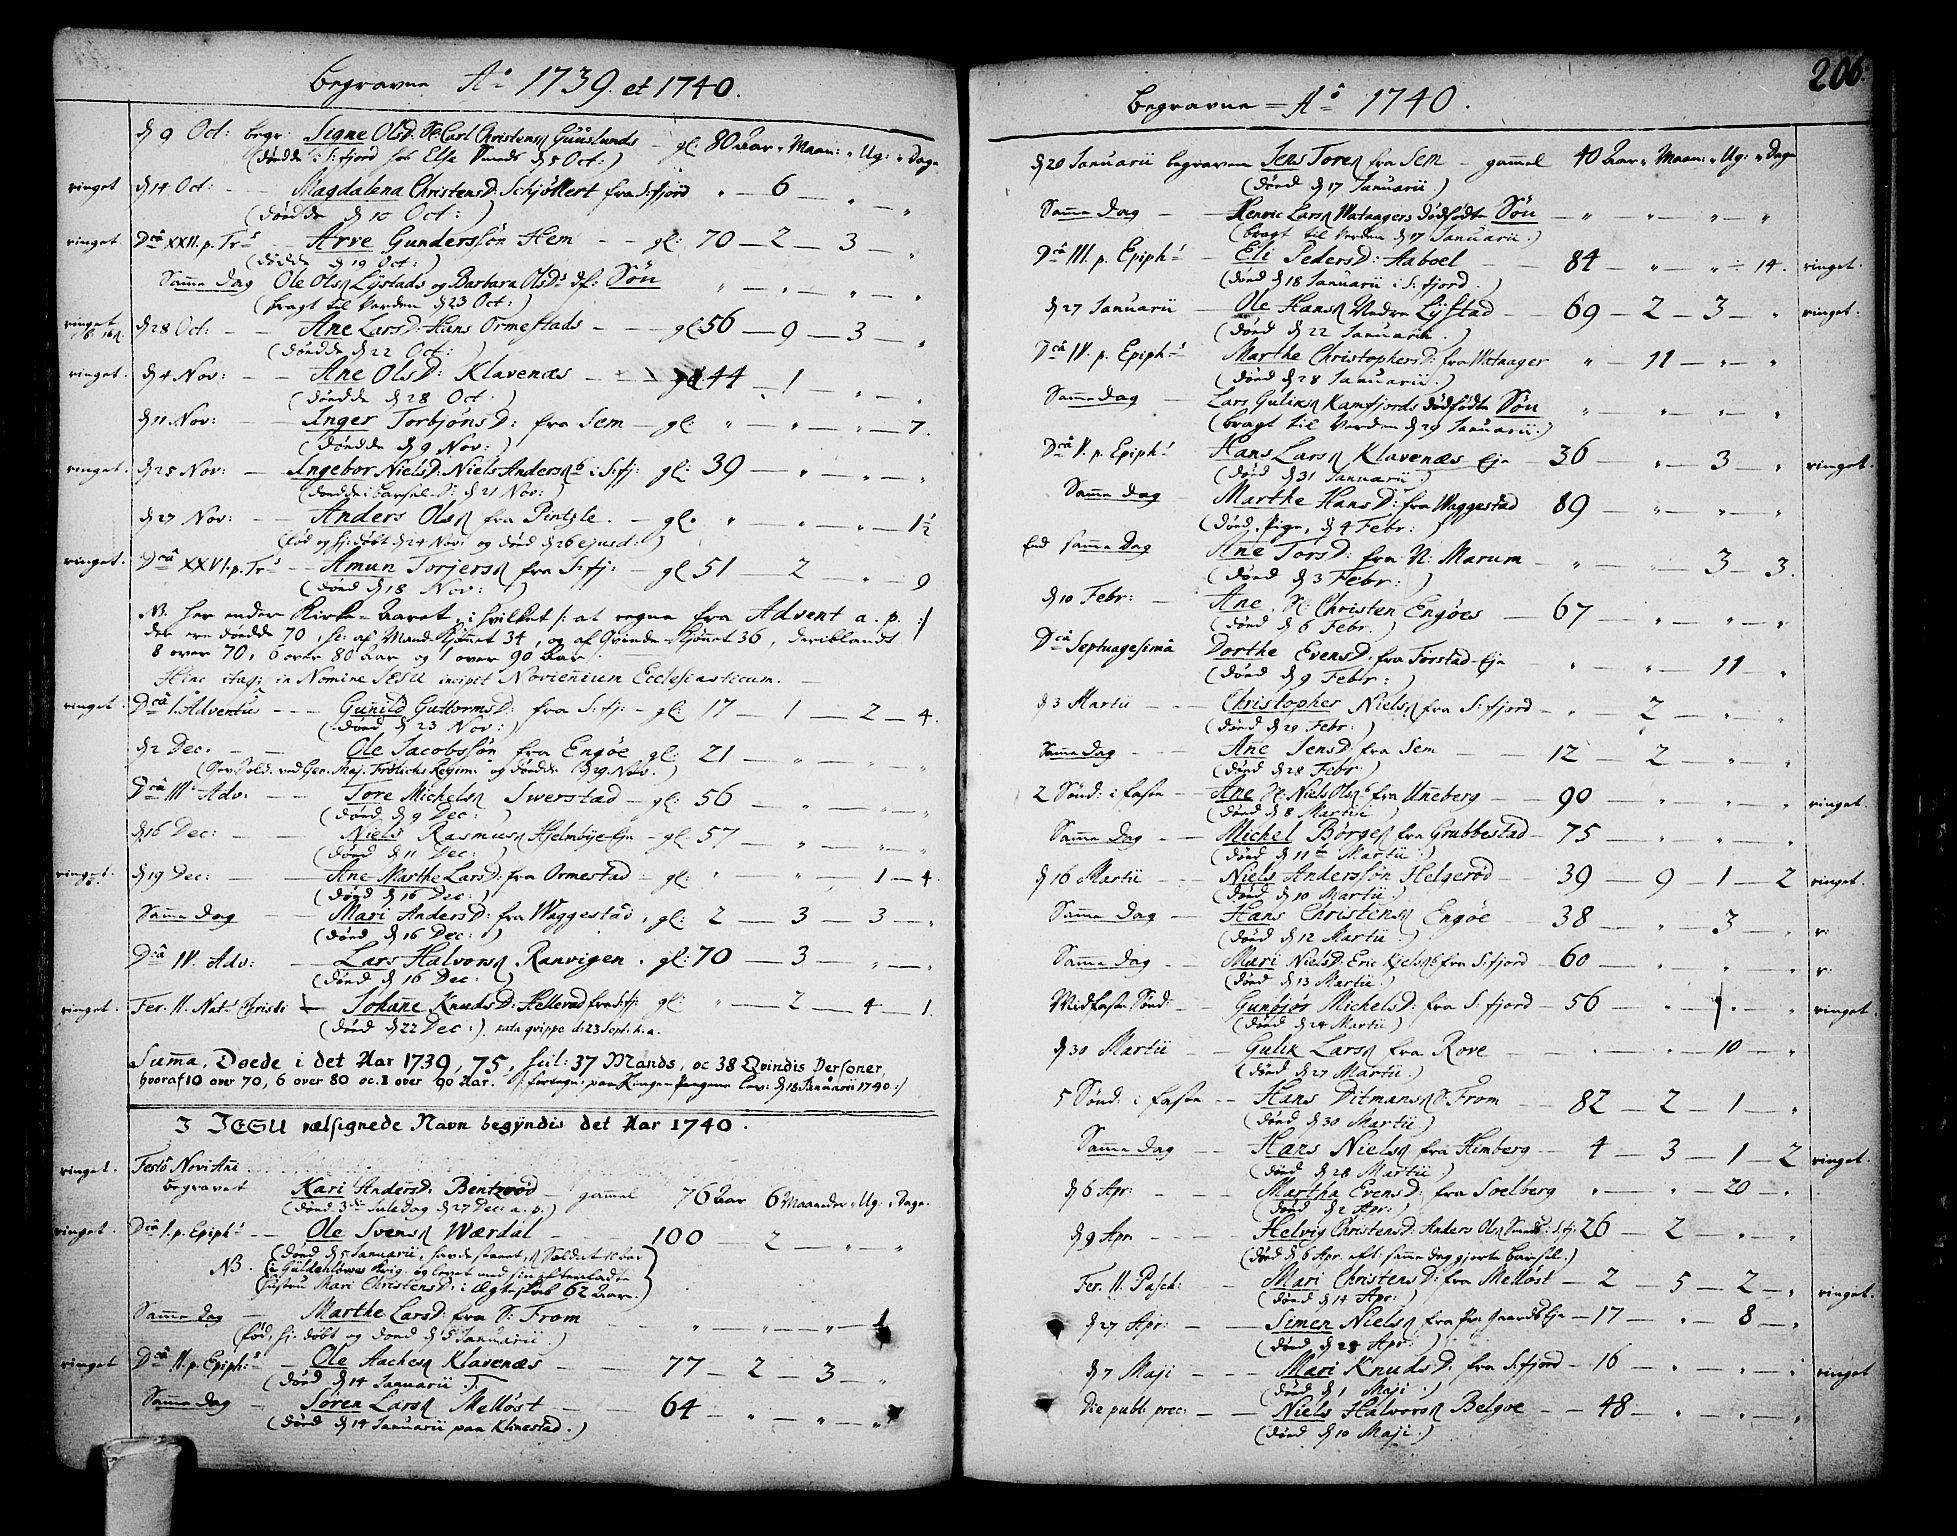 Begravne Aº 1739. et 1740.
d 9 Oct: begr: Signe OlsD: Sl: Carl Christens Guuslunds gl: 80 Aar " Maan: " Ug: " Dage
(dødde i S:fjord hos Else Smeds d 5 Oct:)
ringet d 14 Oct: Magdalena ChristensD: Schjøttert fra S:fjord " 6 " "
(dødde d 10 Oct:)
ringet Dcâ XXII. p. Tr: Arve Gunderssøn Hem gl: 70 2 3 "
(dødde d 19 Oct:)
Samme Dag Ole Ols Lystads og Barbara OlsD: df: Søn " " " "
(bragt til Verden d 23 Oct:)
ringet d 28 Oct: Ane LarsD: Hans Ormestads gl: 56 9 3 "
(dødde d 22 Oct:)
ringet d 4 Nov: Ane OlsD: Klavenæs gl: 44 1 " "
(dødde d 28 Oct:)
d 11 Nov: Inger TorbjønsD: fra Sem gl: " " " 7.
(Dødde d 9 Nov:)
ringet d 25 Nov: Ingebor NielsD: Niels Anders i S:fj: gl: 39 " " "
(dødde i Barsel-S: d 21 Nov:)
d 27 Nov: Anders Ols fra Pintzle gl: " " " 1½
(fød og hj: døbt d 24 Nov: og død d 26 ejusd:)
ringet Dcâ XXVI. p. Tr: Amun Torjers fra S:fj: gl: 51 2 " 9
(død d 18 Nov:)
NB: Her ender Kirke-Aaret, i hvilket /: at regne fra Advent a. p. :/
der ere dødde 70, sc: af Mand-Kjønnet 34, og af Qvinde-Kjønnet 36, deriblandt
8 over 70, 6 over 80 Aar og 1 over 90 Aar.
Hinc itaq; in Nomine JESU incipit Novennium Ecclesiasticum.
ringet Dcâ I. Adventus Gunild GuttormsD: fra S:fj: gl: 17 1 2 4.
(død d 23 Nov:)
d 2 Dec. Ole Jacobssøn fra Engøe gl: 21 " " "
(Gev. Sold. ved Gen: Maj. Frølichs Regim: og dødde d 29 Nov.)
Dcâ III Adv: Tore Michels Swerstad gl: 56 " " "
(død d 9 Dec:)
d 16 Dec: Niels Rasmus Hjelmbye-Eje gl: 57 " " "
(død d 11 Dec:)
ringet d 19 Dec: Ane Marthe LarsD: fra Ormestad gl: " " 1 4.
(død d 16 Dec:)
Samme Dag Mari AndersD: fra Waggestad, gl: 2 3 3 "
(død d 16 Dec:)
Dcâ IV. Adv: Lars Halvors Ranvigen. gl: 70 3 " "
(død d 16 Dec:)
ringet. Fer. II. Nat: Christi Johanne KnudsD: Hellerød fra S:fj: gl: " 2 4 1.
(død d 22 Dec:), nata qvippe d: 23 Sept: h. a.
Summa. Doede i det Aar 1739, 75, hvl: 37 Mands, oc 38 Qvindis Personer,
hvoraf 10 over 70, 6 over 80 oc 1 over 90 Aar. d 18 Januarii 1740:/
I JESU velsignede Navn begyndis det Aar 1740.
ringet. Festo Novi Ani
begravet Kari AndersD: Bentzrød gammel 76 Aar 6 Maaneder " Ug: " Dage.
(død 3die Juledag d 27 Dec: a. p.)
ringet. Dcâ I. p. Epiph: Ole Svens Wærdal 100 2 " "
(død d 5 Januarii, havde staaet, Soldat 10 Aar
NB. i Güldenløwes Krig, og levet med sin efterladte
Hustru Mari ChristensD: i Ægteskab 62 Aar.)
Samme dag Marthe LarsD: fra S: From " " " 1
(fød, hj: døbt og død d 5 Januarii.)
ringet Dcâ II. p. Epiph: Ole Aaches Klavenæs 77 2 3 "
(død d 14 Januarii:)
Samme Dag Søren Lars Melløst 64 " " "
(død d 14 Januarii paa Klinestad.)
206.
Begravne Aº 1740.
d 20 Januarii begraven Jens Tores fra Sem gamel 40 Aar " Maan: " Ug: " Dage
(død d 17 Januarii.)
Samme Dag Henric Lars Wataagers dødfødte Søn " " " "
(bragt til Verden d 17 Januarii.)
Dcâ III. p. Epiph: Eli PedersD: Aaboel 84 " " 14. ringet.
(død d 18 Januarii i S:fjord.)
d 27 Januarii Ole Hans Nedre Lystad 69 2 3 " ringet.
(død d 22 Januarii.)
Dcâ IV. p. Epiph: Marthe ChristophersD: fra Wataager " 11 " "
(død d 28 Januarii.)
Samme dag Lars Guliks Kamfjords dødfødte Søn " " " "
(bragt til Verden d 29 Januarii.)
Dcâ V. p. Epiph: Hans Lars Klavenæs Eje 36 " 3 " ringet.
(død d 31 Januarii.)
Samme Dag Marthe HansD: fra Waggestad 89 " " "
(død, Pige, d 4 Febr:)
End samme Dag Ane TorsD: fra N: Marum " " 3 3.
(død d 3 Febr:)
d 10 Febr: Ane, Sl: Christen Engøes 67 " " "
(død d 6 Febr.)
Dcâ Septuagesimâ Dorthe EvensD: fra Forstad-Eje " " 11 "
(død d 9 Febr:)
d 3 Martii Christopher Niels fra S:fjord " 2 " "
(død d 29 Febr:)
Samme Dag Ane JensD: fra Sem 12 2 " "
(død d 28 Febr:)
2 Sønd: i faste Ane Sl: Niels Ols fra Unneberg 90 " " " ringet.
(død d 8 Martii)
Samme Dag Michel Børges fra Grubbestad 75 " " "
(død d 11te Martii.)
d 16 Martii Niels Anderssøn Helgerød 39 9 1 2 ringet.
(død d 10 Martii)
Samme Dag Hans Christens Engøe 38 " 3 " r:
(død d 12 Martii)
Samme Dag Mari NielsD: Eric Kjels fra S:fjord 60 " " " r:
(død d 13 Martii)
Midfaste Sønd: Gunbjør MichelsD: fra S:fjord 56 " " " ringet.
(død d 24 Martii)
d 30 Martii Gulik Lars fra Rove " " 10 "
(død d 27 Martii.)
5 Sønd: i faste Hans Ditmans S: From 82 2 1 "
(død d 30 Martii)
Samme Dag Hans Niels fra Himberg 4 3 1 2 ringet.
(død d 28 Martii.)
d 6 Apr: Martha EvensD: fra Soelberg " " 20 "
(død d 2 Apr:)
d 9 Apr: Helvig ChristensD: Anders Ols Smeds S:fj: 26 2 " "
(død d 6 Apr. eft: samme dag gjorte barsel.)
Fer. II. Pasch: Mari ChristensD: fra Melløst 2 5 2 " ringet.
(død d 14 Apr:)
d 27 Apr: Simen Niels fra Pr: Gaards Eje 17 " 8 "
(død d 23 Apr:)
d 7 Maji Mari KnudsD: fra S:fjord 16 " " " ringet
(død d 1 Maji.)
Die publ: prec: Niels Halvors Belgøe 48 " " "
(død d 10 Maji.)